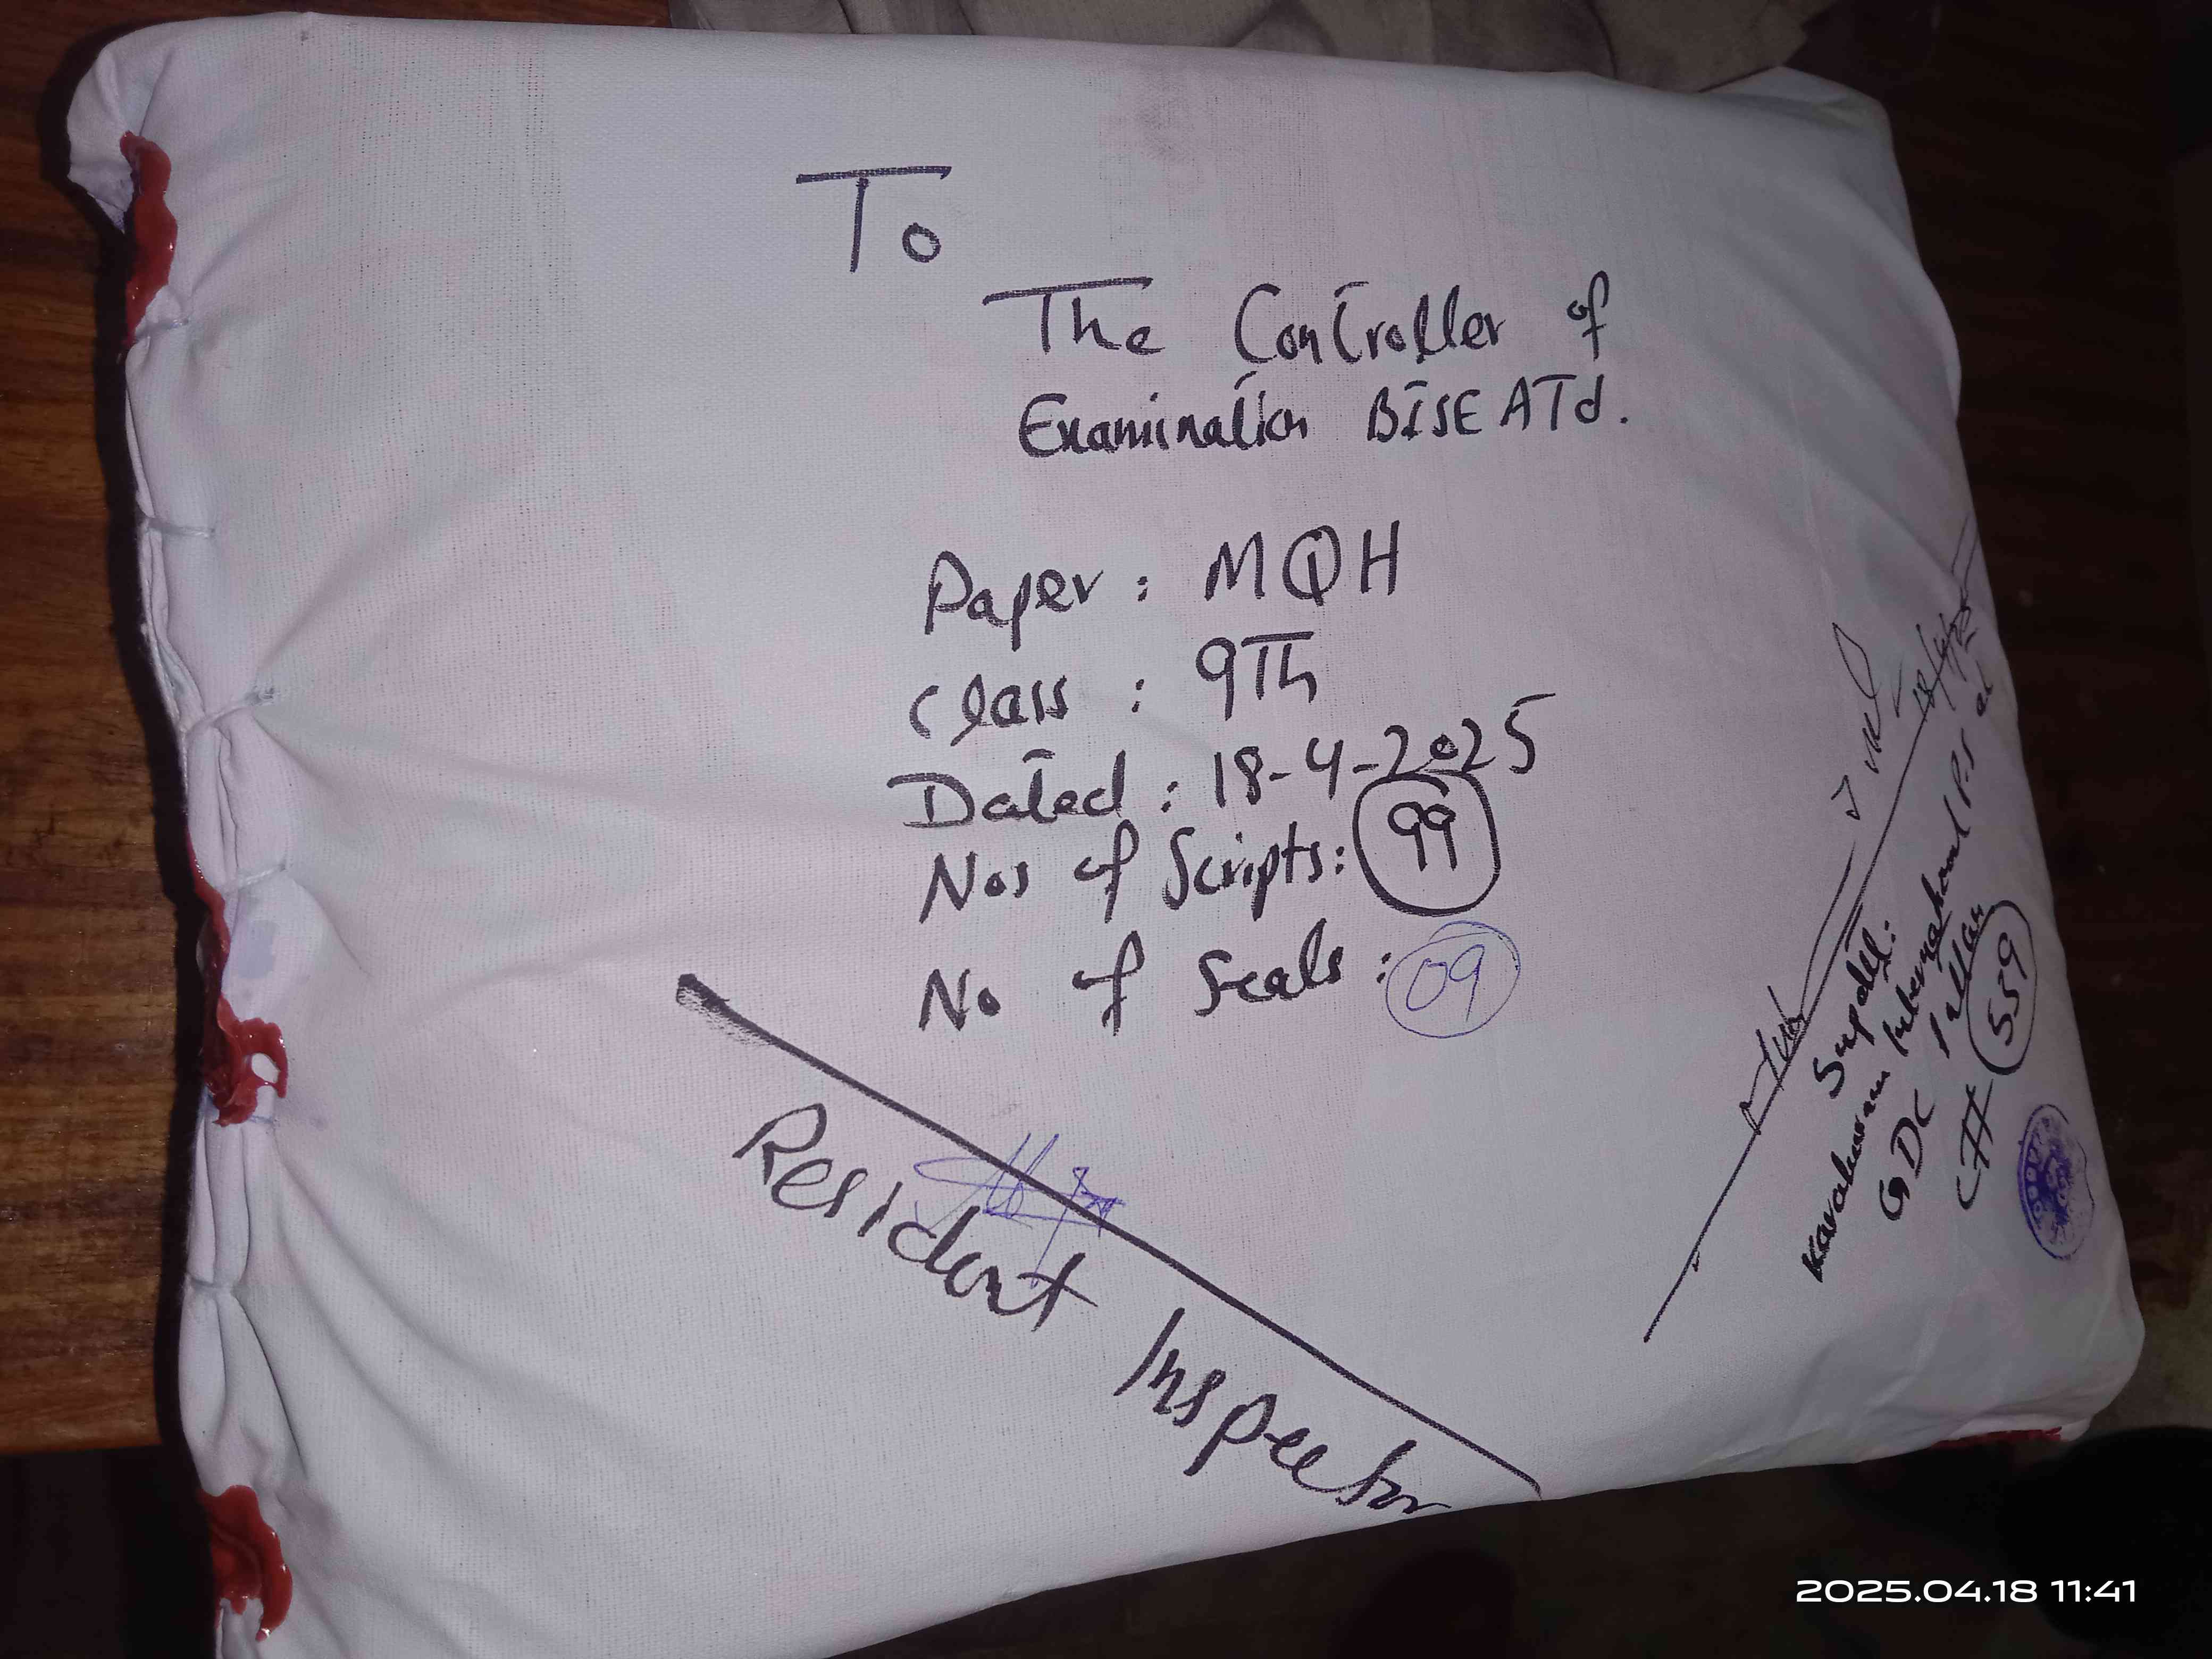 To
The Controller of
Examination BISE ATd.
Paper : MQH
Class : 9Th
Dated : 18-4-2025
Nos of Scripts: 99
No of Seals : 09
Resident Inspector
18/4/25
Supdtt:
Karakuram International P.S
GDC
C## 559
2025.04.18 11:41